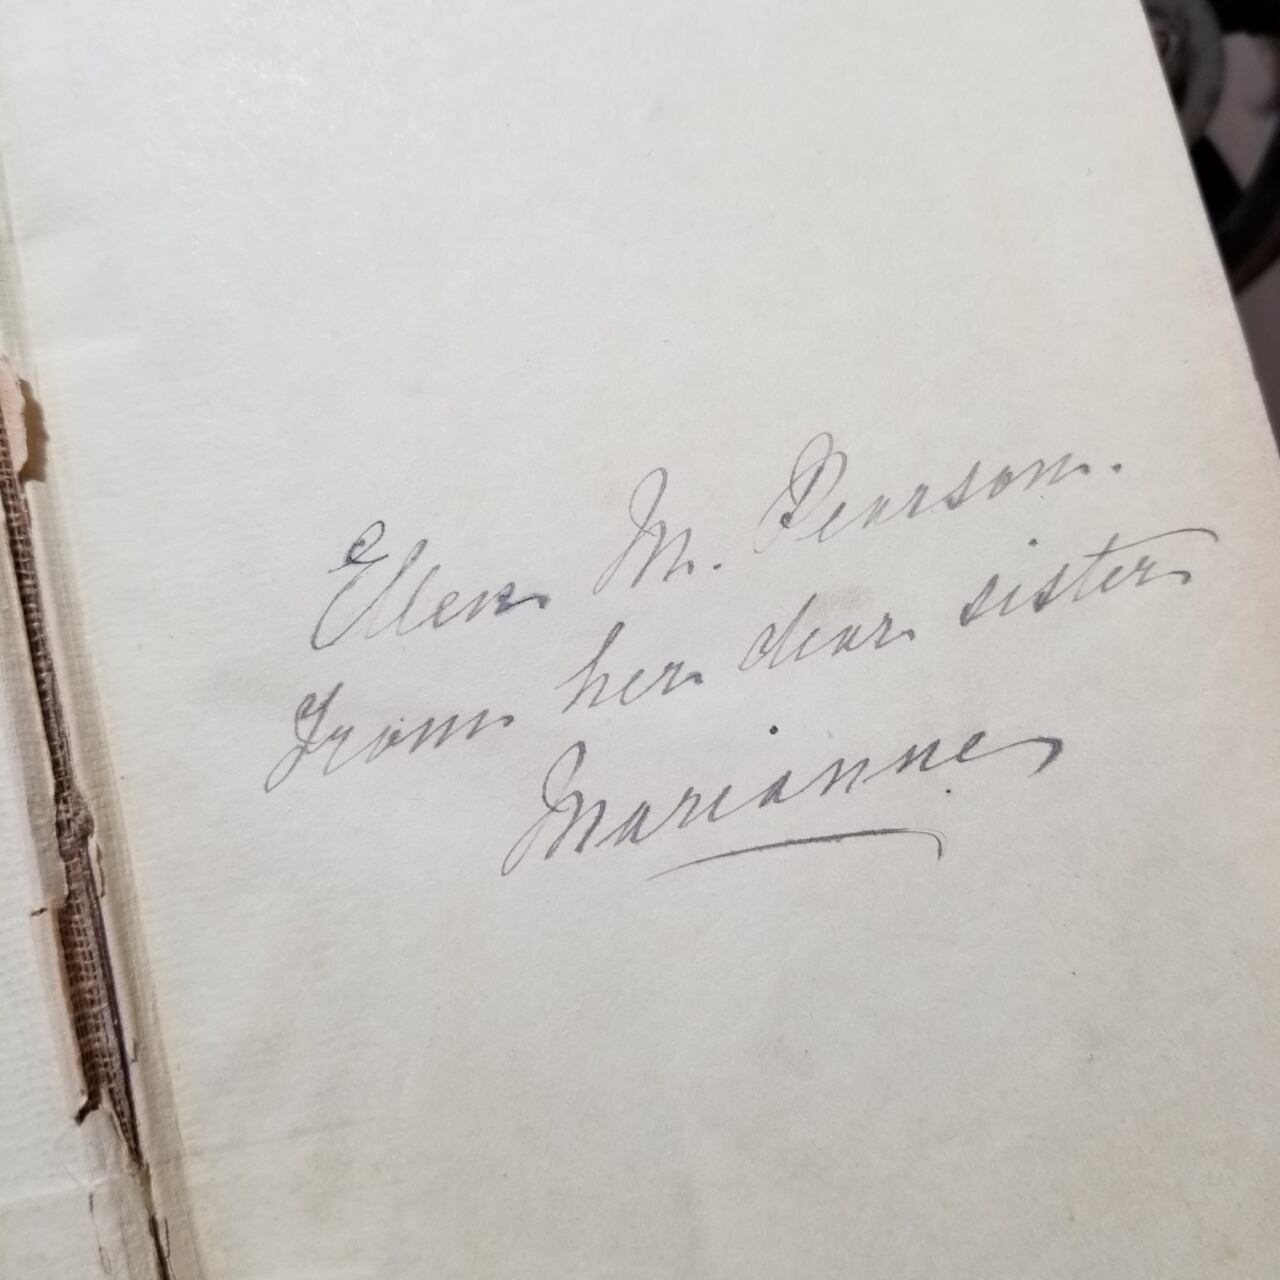 Ellen M. Pearson.
From her dear sister
Marianne